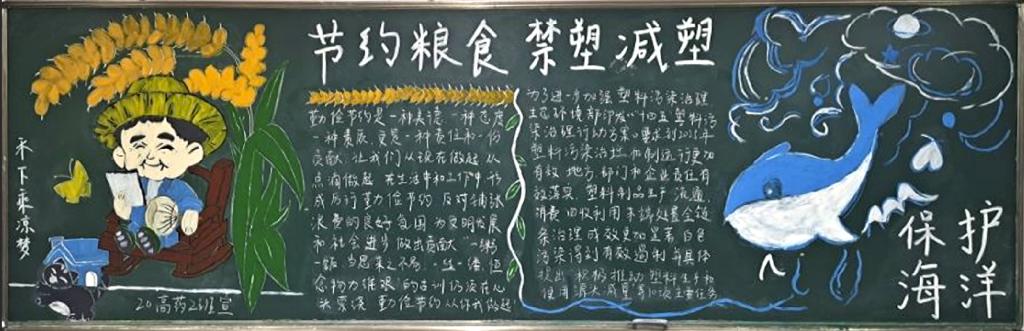 节约粮食 禁塑减塑
禾下乘凉梦
勤俭节约是一种美德 一种态度
一种素质 更是一种责任和一份
贡献 让我们从现在做起 从
点滴做起 在生活中和工作中养
成厉行勤俭节约 反对铺张
浪费的良好自图为文明发展
和社会进步做出贡献 一粥
一饭 当思来之不易 一丝一缕 恒
念物力维艰的古训仍
勤俭节约从你我做起
为了进一步加强塑料污染治理
生态环境部印发 十四五 塑料污
染治理行动方案 要求到2025年
塑料污染治理机制运行更加
有效 地方 部门和企业责任有
效落实 塑料制品生产 流通
消费 回收利用 末端处置全链
条治理成效更加显著 白色
污染得到有效遏制
积极推动 塑料生产和
使用源头减量
保护
海洋
20高药26班宣